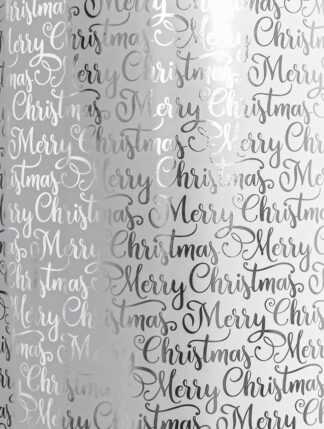 Christmas Merry Christmas
Merry Christmas Merry
Christmas Merry Christmas
Merry Christmas Merry
Christmas Merry Christmas
Merry Christmas Merry
Christmas Merry Christmas
Merry Christmas Merry
Christmas Merry Christmas
Merry Christmas Merry
Christmas Merry Christmas
Merry Christmas Merry
Christmas Merry Christmas
Merry Christmas Merry